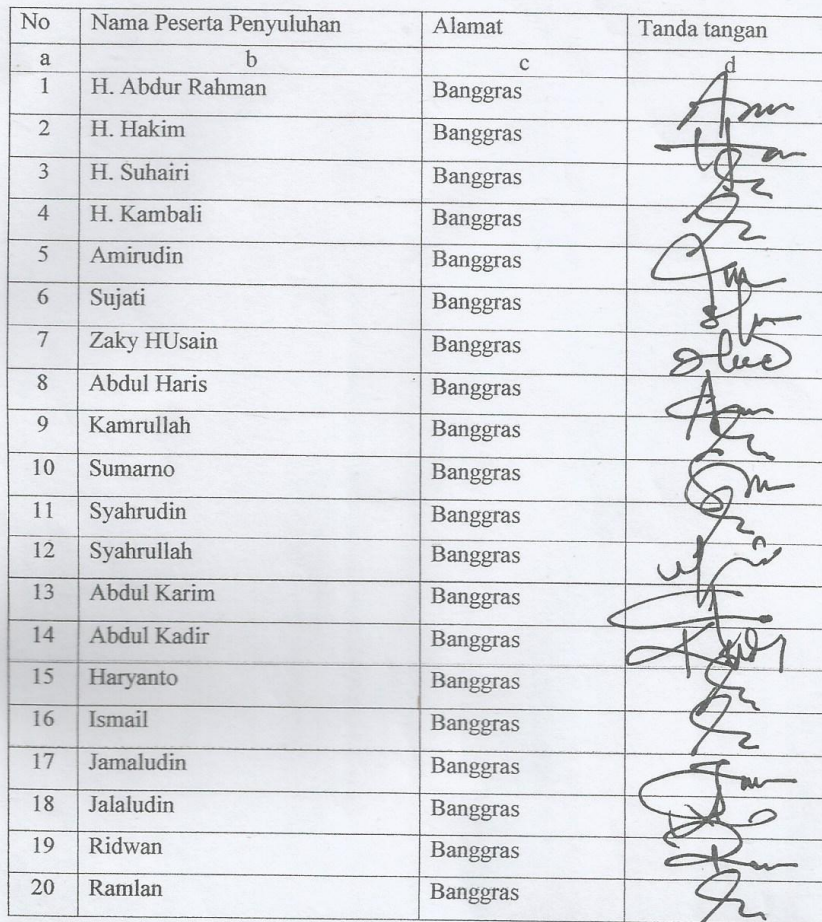 No Nama Peserta Penyuluhan Alamat Tanda tangan
a b c d
1 H. Abdur Rahman Banggras
2 H. Hakim Banggras
3 H. Suhairi Banggras
4 H. Kambali Banggras
5 Amirudin Banggras
6 Sujati Banggras
7 Zaky HUsain Banggras
8 Abdul Haris Banggras
9 Kamrullah Banggras
10 Sumarno Banggras
11 Syahrudin Banggras
12 Syahrullah Banggras
13 Abdul Karim Banggras
14 Abdul Kadir Banggras
15 Haryanto Banggras
16 Ismail Banggras
17 Jamaludin Banggras
18 Jalaludin Banggras
19 Ridwan Banggras
20 Ramlan Banggras